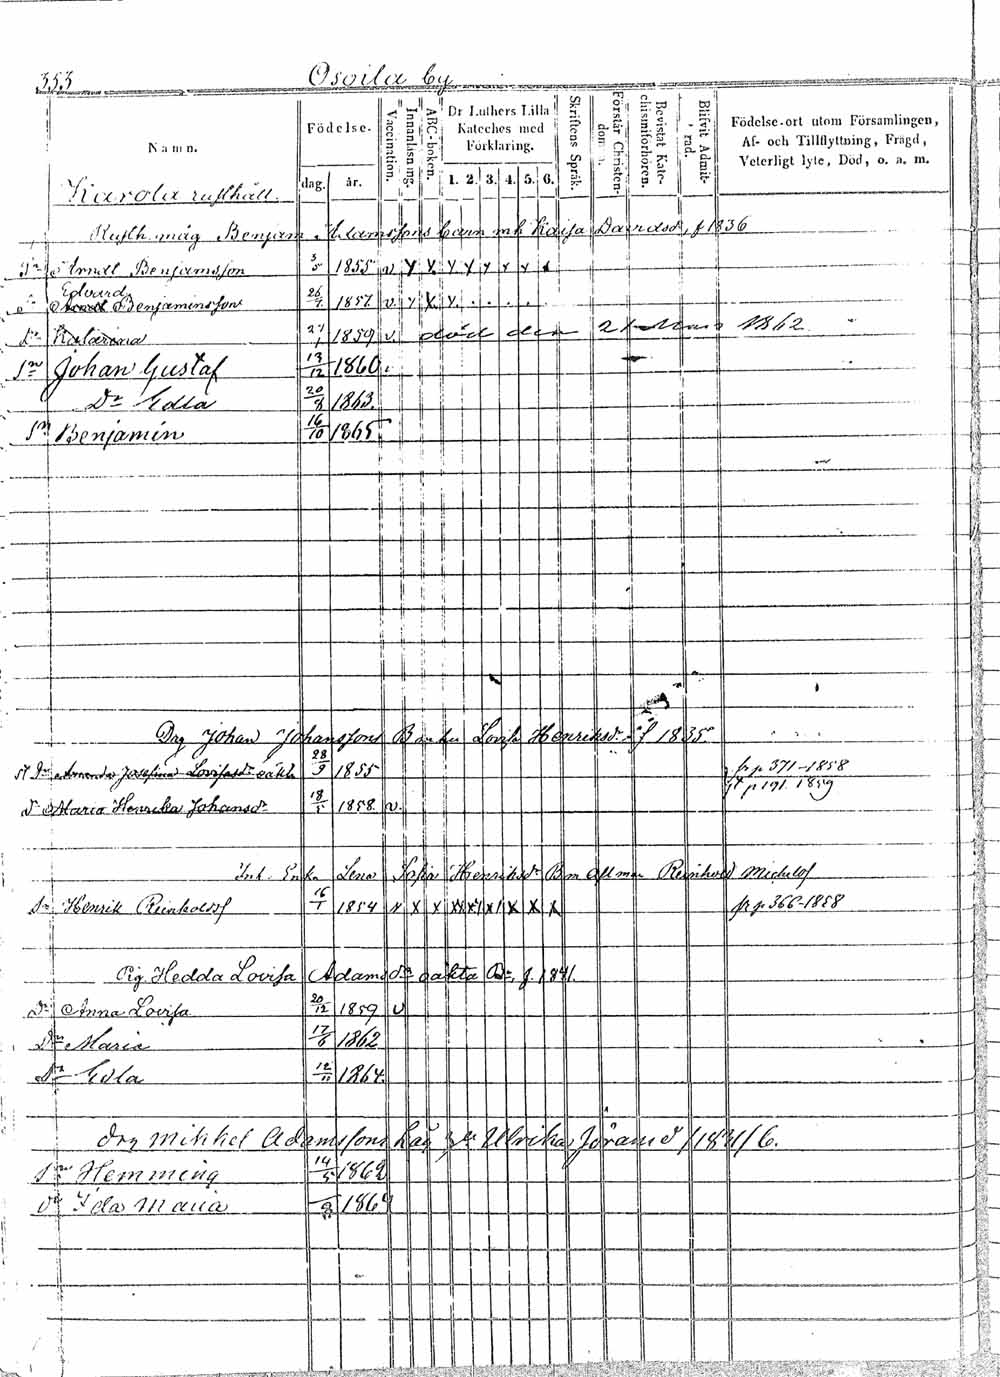 353 Osoila by
Namn.
Födelse-
dag. år.
Vaccination.
Innanläsning.
ABC-boken.
Dr Luthers Lilla Kateches med Förklaring.
1. 2. 3. 4. 5. 6.
Skriftens Språk.
Förstår Christendom.
Bevistat Katechismiförhören.
Blifvit Admitterad.
Födelse-ort utom Församlingen,
Af- och Tillflyttning, Frägd,
Veterligt lyte, Död, o. a. m.
Karola rusthåll.
Rusth. måg Benjam Adamssons barn mh Kaisa Davidsd. f 1836
Sn Arndt Benjamsson 3/5 1855 v
Edvard
Sn Arndt Benjaminsson 26/7 1857 v.
Dr Katarina 27/1 1859 v. död den 21 Mars 1862
Sn Johan Gustaf 13/12 1860
Dr Edla 20/8 1863.
Sn Benjamin 16/10 1865
Drg Johan Johanssons B m hu Lovisa Henriksdr f 1835
Dr Amanda Josefina Lovisadr oäkta 28/9 1855 fr p 371-1858
p 191. 1859
Dr Maria Henrika Johansdr 18/5 1858 v.
Inh. Enka Lena Sofia Henriksdr B m aflmn Reinhold Michelsf
Sn Henrik Reinholdsf 16/1 1854 fr p 366-1858
Pig Hedda Lovisa Adamsdr oäkta Bn, f. 1841.
Dr Anna Lovisa 20/12 1859 v
Dr Maria 17/6 1862
Dr Edla 12/11 1864.
drg Mikkel Adamssons Ulrika Jöransd
Sn Hemming 14/5 1862
dr Ida Maria